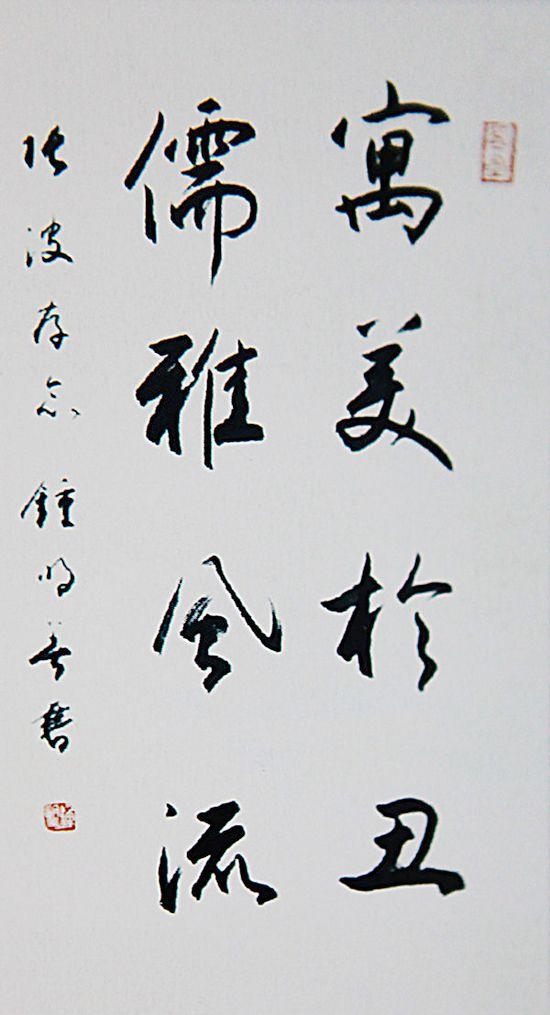 寓美於丑
儒雅风流
张波存念 鍾明善书